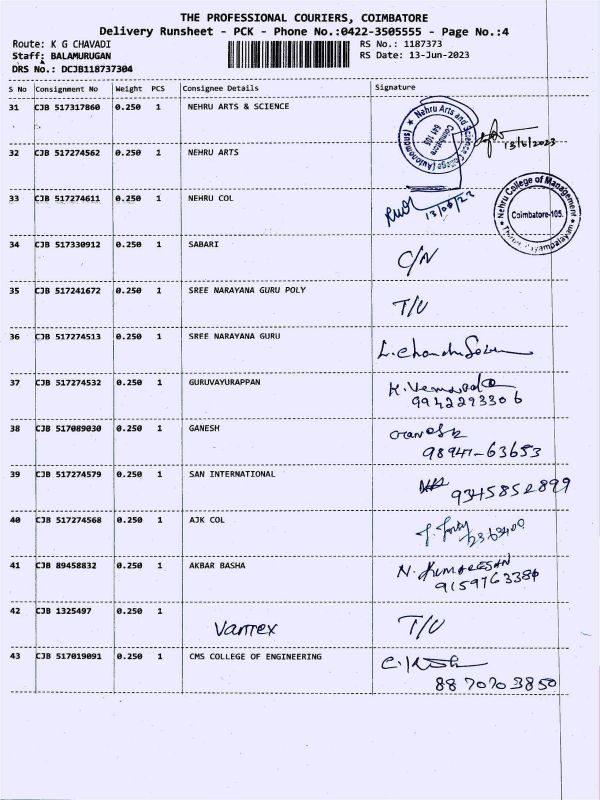 THE PROFESSIONAL COURIERS, COIMBATORE
Delivery Runsheet - PCK - Phone No.:0422-3505555 - Page No.:4
Route: K G CHAVADI RS No.: 1187373
Staff: BALAMURUGAN RS Date: 13-Jun-2023
DRS No.: DCJB118737304
S No Consignment No Weight PCS Consignee Details Signature
31 CJB 517317860 0.250 1 NEHRU ARTS & SCIENCE
Nehru Arts and Science College (Autonomous)
Coimbatore
641 105
13/6/2023
32 CJB 517274562 0.250 1 NEHRU ARTS
33 CJB 517274611 0.250 1 NEHRU COL
13/06/23
Nehru College of Management
Coimbatore-105.
34 CJB 517330912 0.250 1 SABARI C/N
35 CJB 517241672 0.250 1 SREE NARAYANA GURU POLY T/U
36 CJB 517274513 0.250 1 SREE NARAYANA GURU
37 CJB 517274532 0.250 1 GURUVAYURAPPAN
9942293306
38 CJB 517089030 0.250 1 GANESH Ganesh
98941-63653
39 CJB 517274579 0.250 1 SAN INTERNATIONAL
9345852899
40 CJB 517274568 0.250 1 AJK COL
41 CJB 89458832 0.250 1 AKBAR BASHA N. KUMARESAN
9159763384
42 CJB 1325497 0.250 1 Vantex T/U
43 CJB 517019091 0.250 1 CMS COLLEGE OF ENGINEERING
8870703850